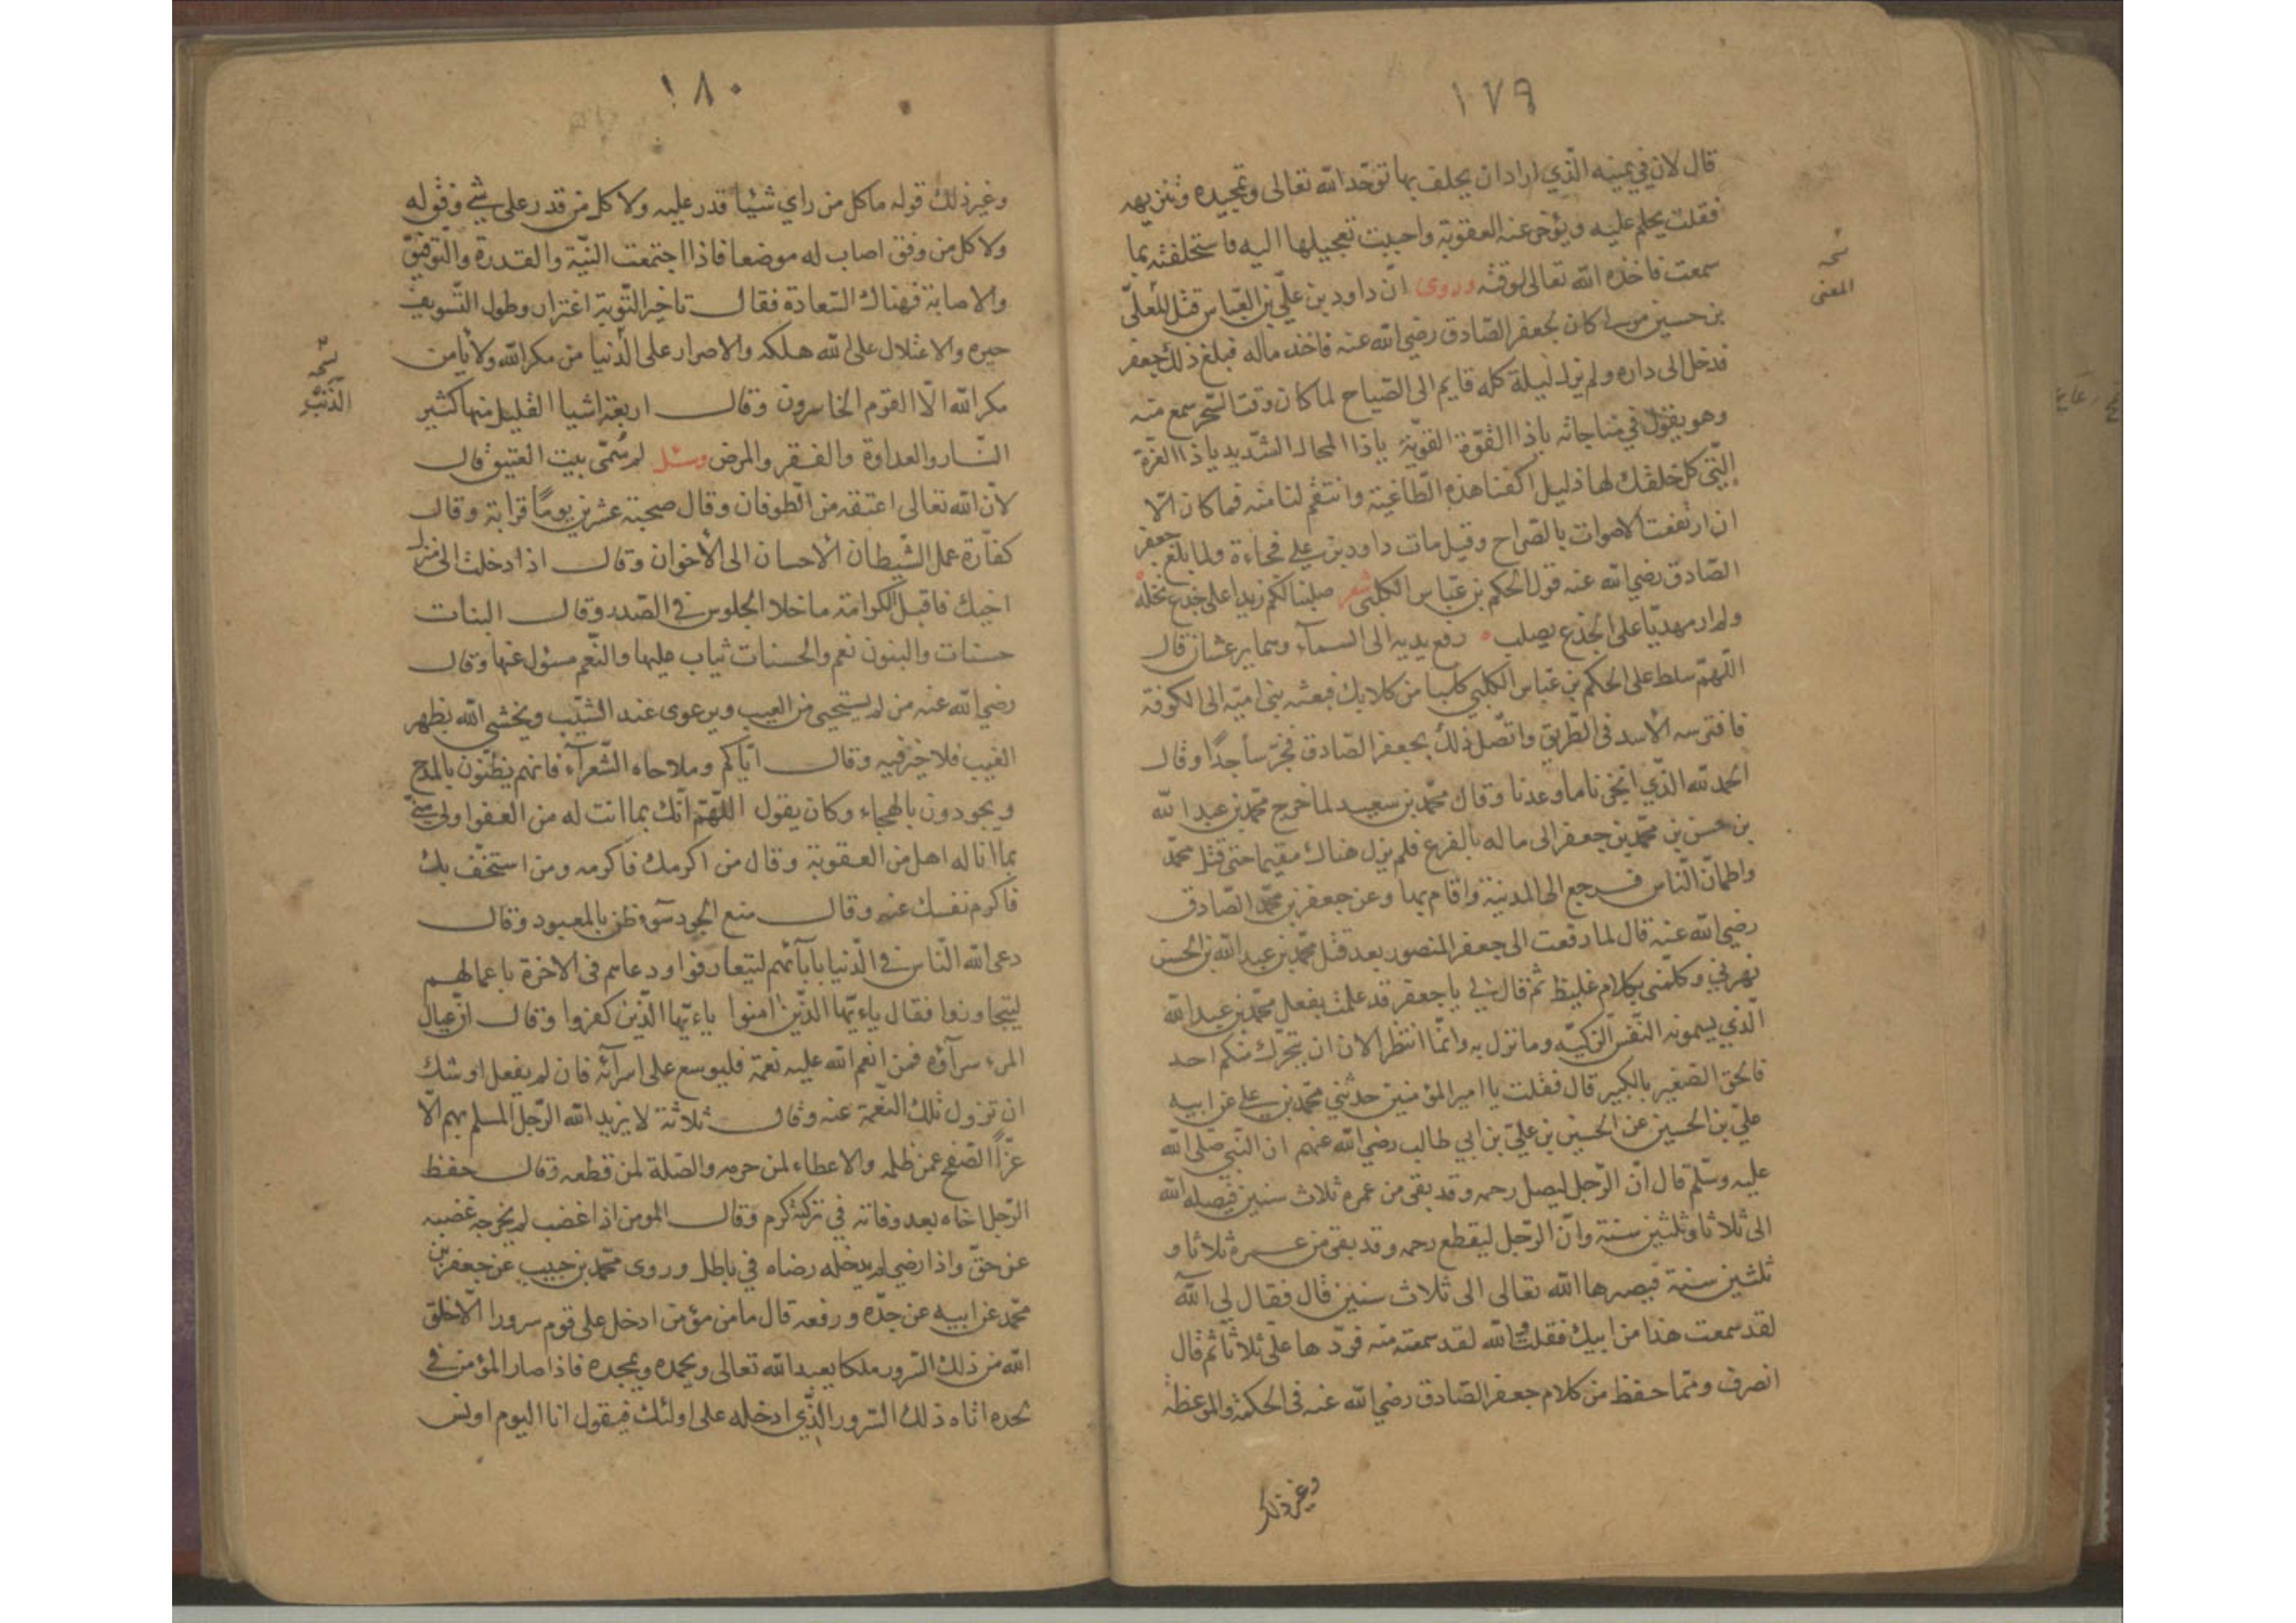 ١٧٩
قال لان في يمينه الّذي اراد ان يحلف بها توحّد الله تعالى وتمجيده وتنزيهه
فقلت يحلم عليه ويؤخر عنه العقوبة واحببت تعجيلها اليه فاستحلفته بما
سمعت فاخذه الله تعالى لوقته وروى انّ داود بن علّي بن العّباس قتل المعلّى
بن حسين مولى كان لجعفر الصّادق رضي الله عنه فاخذ ماله فبلغ ذلك جعفر
فدخل الى داره ولم يزل ليلة كله قايم الى الصّباح لما كان وقت السّحر سمع منه
وهو يقول في مناجاته ياذا القوّة القويّة ياذا المحال الشّديد ياذا العزّة
الّتي كل خلقك لها ذليل اكفنا هذه الطّاغية وانتقم لنا منه فما كان الّا
ان ارتفعت الاصوات بالصّراح وقيل مات داود بن علي فجاءة ولما بلغ جعفر
الصّادق رضي الله عنه قول الحكم بن عبّاس الكلبي شعر صلبنا لكم زيدا على جذع نخله
ولم ار مهديّا على الجذع يصلب رفع يديه الى السماء وهما يرعشان قال
اللّهمّ سلط على الحكم بن عبّاس الكلبي كلبا من كلابك فبعثه بني اميّة الى الكوفة
فافترسه الأسد في الطّريق واتّصل ذلك بجعفر الصّادق فخرّ ساجدًا وقال
الحمد لله الّذي انجزنا ما وعدنا وقال محمّد بن سعيد لما خرج محمّد بن عبد الله
بن حسن بن محمّد بن جعفر الى ماله بالفرع فلم يزل هناك مقيما حتى قتل محمّد
واطمأنّ النّاس فرجع الى المدينة واقام بها وعن جعفر بن محمّد الصّادق
رضي الله عنه قال لما دفعت الى جعفر المنصور بعد قتل محمّد بن عبد الله بن الحسن
نهرني وكلّمني بكلام غليظ ثم قال لي يا جعفر قد علمت بفعل محمّد بن عبد الله
الّذي يسمونه النّفس الزكيّه وما نزل به وانّما انتظر الان ان يتحرّك منكم احد
فالحق الصّغير بالكبير قال فقلت يا امير المؤمنين حدثني محمّد بن علي عن ابيه
علّي بن الحسين عن الحسين بن علّي بن ابي طالب رضي الله عنهم ان النّبي صلّى الله
عليه وسلّم قال انّ الرّجل ليصل رحمه وقد بقى من عمره ثلاث سنين فيصله الله
الى ثلاثا وثلثين سنة وانّ الرّجل ليقطع رحمه وقد بقى من عمره ثلاثا و
ثلثين سنة فيصرها الله تعالى الى ثلاث سنين قال فقال لي آلله
لقد سمعت هذا من ابيك فقلت والله لقد سمعته منه فردّها علّي ثلاثا ثم قال
انصرف وممّا حفظ من كلام جعفر الصّادق رضي الله عنه في الحكمة والموعظة
وغير ذلك
نسخه
المعنى
١٨٠
وغير ذلك قوله ما كل من راي شيئا قدر عليه ولا كل من قدر على شيْ وفق له
ولا كل من وفق اصاب له موضعا فاذا اجتمعت النيّة والقدرة والتّوفيق
والاصابة فهناك السّعادة فقال تاخير التّوبة اغترار وطول التّسويف
حيره والاعتلال على الله هلكه والاصرار على الذّنيا من مكر الله ولا يامن
مكر الله الّا القوم الخاسرون وقال اربعة اشيا القليل منها كثير
النّار والعداوة والفقر والمرض وسئل لم سُمّى بيت العتيق قال
لانّ الله تعالى اعتقه من الطّوفان وقال صحبة عشرين يومًا قرابة وقال
كفّارة عمل الشّيطان الاحسان الى الأخوان وقال اذا دخلت الى منزل
اخيك فاقبل الكرامة ما خلا الجلوس في الصّدر وقال البنات
حسنات والبنون نعم والحسنات ثياب عليها والنّعم مسئول عنها وقال
رضي الله عنه من لم يستحيى من العيب ويرعوى عند الشيّب ويخشى الله بظهر
الغيب فلا خير فيه وقال ايّاكم وملاحاه الشّعرآء فانهم يظنّون بالمدح
ويجودون بالهجاء وكان يقول اللّهمّ انّك بما انت له من العفو اولى منّي
بما انا له اهل من العقوبة وقال من اكرمك فاكرمه ومن استخفّ بك
فاكرم نفسك عنه وقال منع الجود سوء ظن بالمعبود وقال
دعى الله النّاس في الدّنيا بابآئهم ليتعارفوا ودعاهم في الاخرة باعمالهم
ليتجاوزوا فقال ياءيّها الّذين امنوا ياءيّها الّذين كفروا وقال انّ عيال
المرء سرآؤه فمن انعم الله عليه نعمة فليوسع على اسرآئه فان لم يفعل اوشك
ان تزول تلك النّعمة عنه وقال ثلاثة لا يزيد الله الرّجل المسلم بهم الّا
عزًّا الصّفح عمن ظلمه والاعطاء لمن حرمه والصّلة لمن قطعه وقال حفظ
الرّجل اخاه بعد وفاته في تركته كرم وقال المومن اذا غضب لم يخرجه غضبه
عن حقّ واذا رضي لم يدخله رضاه في باطل وروى محمّد بن حبيب عن جعفر بن
محمّد عن ابيه عن جدّه ورفعه قال ما من مؤمن ادخل على قوم سرورا الّا خلق
الله من ذلك السّرور ملكا يعبد الله تعالى ويحمده ويمجده فاذا صار المؤمن في
لحده اتاه ذلك السّرور الّذي ادخله على اولئك فيقول انا اليوم اونس
نسخه
الذّنب